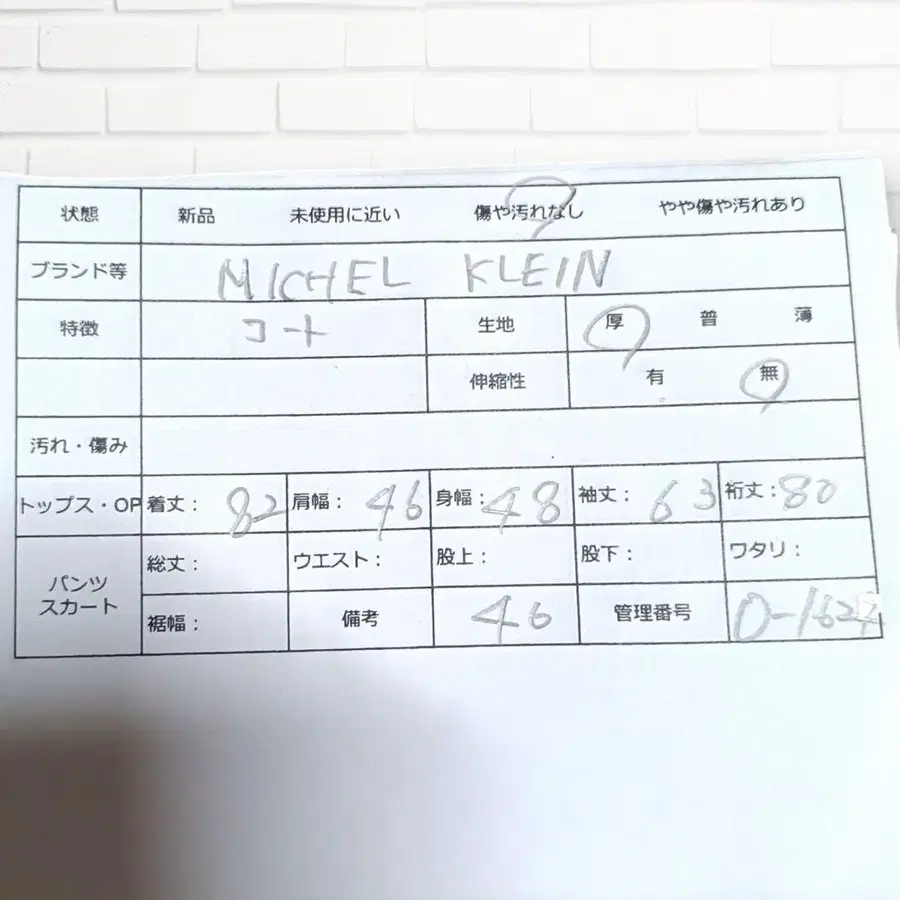 状態 新品 未使用に近い 傷や汚れなし やや傷や汚れあり
ブランド等 MICHEL KLEIN
特徴 コート 生地 厚 普 薄
伸縮性 有 無
汚れ・傷み
トップス・OP 着丈: 82 肩幅: 46 身幅: 48 袖丈: 63 裄丈: 80
パンツ
スカート
総丈: ウエスト: 股上: 股下: ワタリ:
裾幅: 備考 46 管理番号